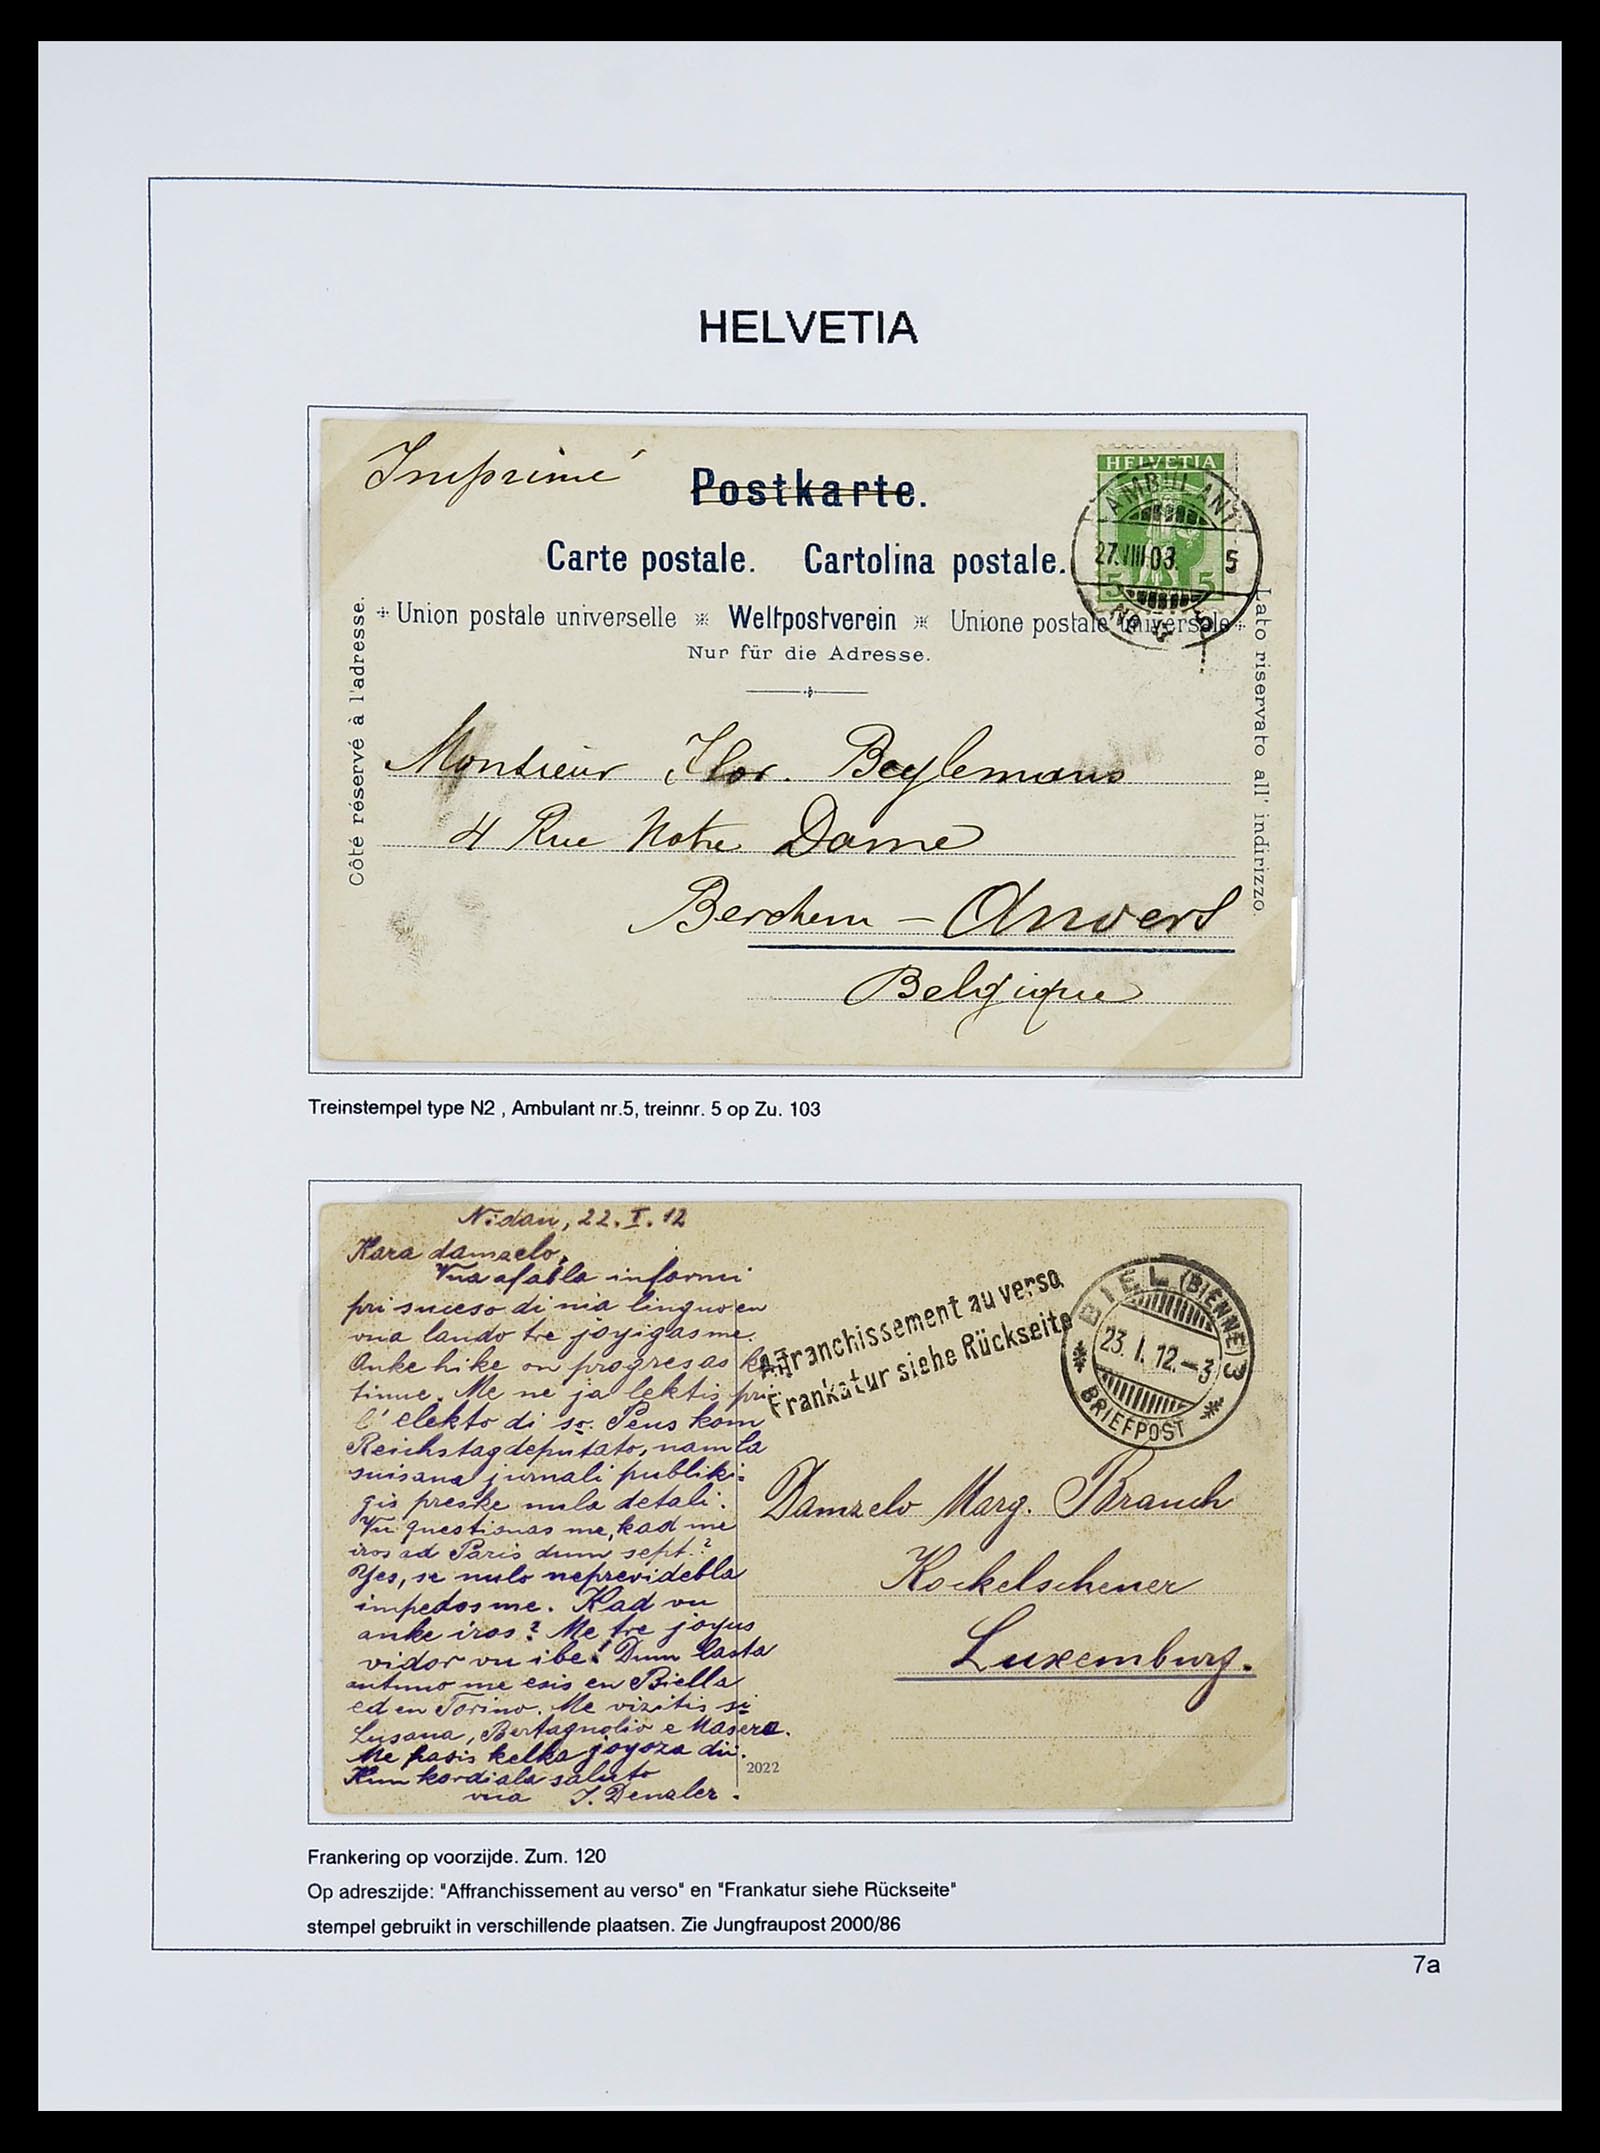 HELVETIA
Imprimé
Postkarte.
Carte postale. Cartolina postale.
Union postale universelle Weltpostverein Unione postale universale
Nur für die Adresse.
Côté réservé à l'adresse.
Lato riservato all' indirizzo.
HELVETIA
5 5
AMBULANT
27.VIII.03. 5
No 5
Monsieur Flor. Beylemans
4 Rue Notre Dame
Berchem – Anvers
Belgique
Treinstempel type N2 , Ambulant nr.5, treinnr. 5 op Zu. 103
Nidau, 22. I. 12
Kara damzelo,
Vua afabla informi
pri suceso di nia linguo en
vua lando tre joyigas me.
Anke hike on progresas kon
tinue. Me ne ja lektis pri
l' elekto di so. Peus kom
Reichstagdeputato, nam la
suisana jurnali publiki=
gis preske nula detali.
Vu questionas me, kad me
iros ad Paris dum sept.?
Yes, se nulo neprevidebla
impedos me. Kad vu
anke iros? Me tre joyus
vidor vu ibe! Dum lasta
autuno me esis en Biella
ed en Torino. Me vizitis si
Lusana, Bertagnolio e Masera.
Me pasis kelka joyoza dii.
Kun kordiala saluto
vua J. Denzler.
2022
Affranchissement au verso
Frankatur siehe Rückseite
BIEL (BIENNE) 3
23. I. 12.–3
BRIEFPOST
Damzelo Marg. Brauch
Kockelscheuer
Luxemburg.
Frankering op voorzijde. Zum. 120
Op adreszijde: "Affranchissement au verso" en "Frankatur siehe Rückseite"
stempel gebruikt in verschillende plaatsen. Zie Jungfraupost 2000/86
7a